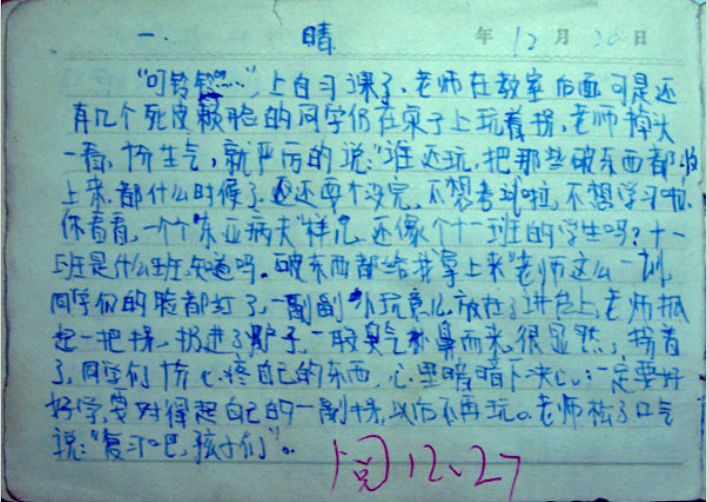 一. 晴 年12月26日
"叮铃铃……"上自习课了,老师在教室后面可是还
有几个死皮赖脸的同学仍在桌子上玩着拐,老师掉头
一看,十分生气,就严厉的说:"谁还玩,把那些破东西都收
上来,都什么时候了,还耍个没完,不想考试啦,不想学习啦.
你看看,一个个"东亚病夫"样儿,还像个十一班的学生吗?十一
班是什么班,知道吗。破东西都给我拿上来"老师这么一训,
同学们的脸都红了,一副副 玩意儿放在了讲台上,老师抓
起一把拐,扔进了炉子,一股臭气扑鼻而来,很显然,拐着
了,同学们十分心疼自己的东西,心里暗暗下决心:一定要好
好学,要对得起自己的一副拐,以后不再玩。老师松了口气
说:"复习吧,孩子们"。
阅12、27